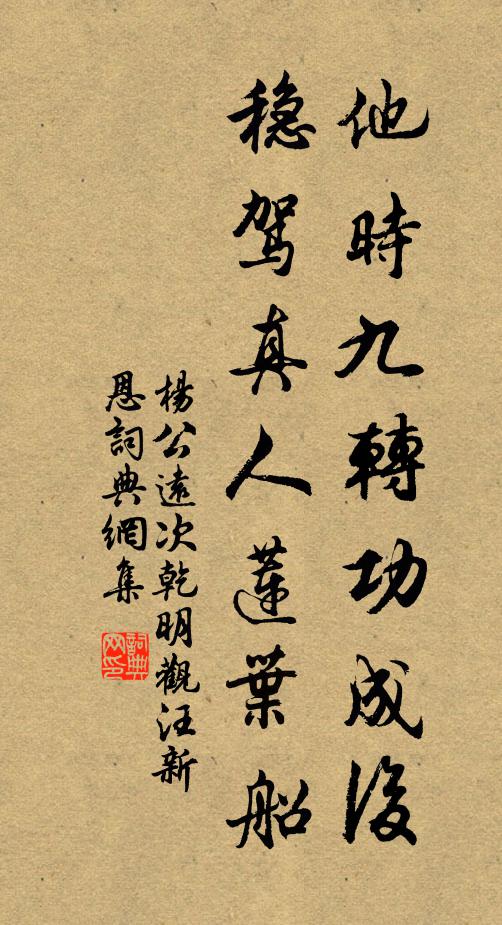 他時九轉功成後
穩駕真人蓮葉船
楊公遠次乾明觀汪新
恩詞典網集
詞典网印